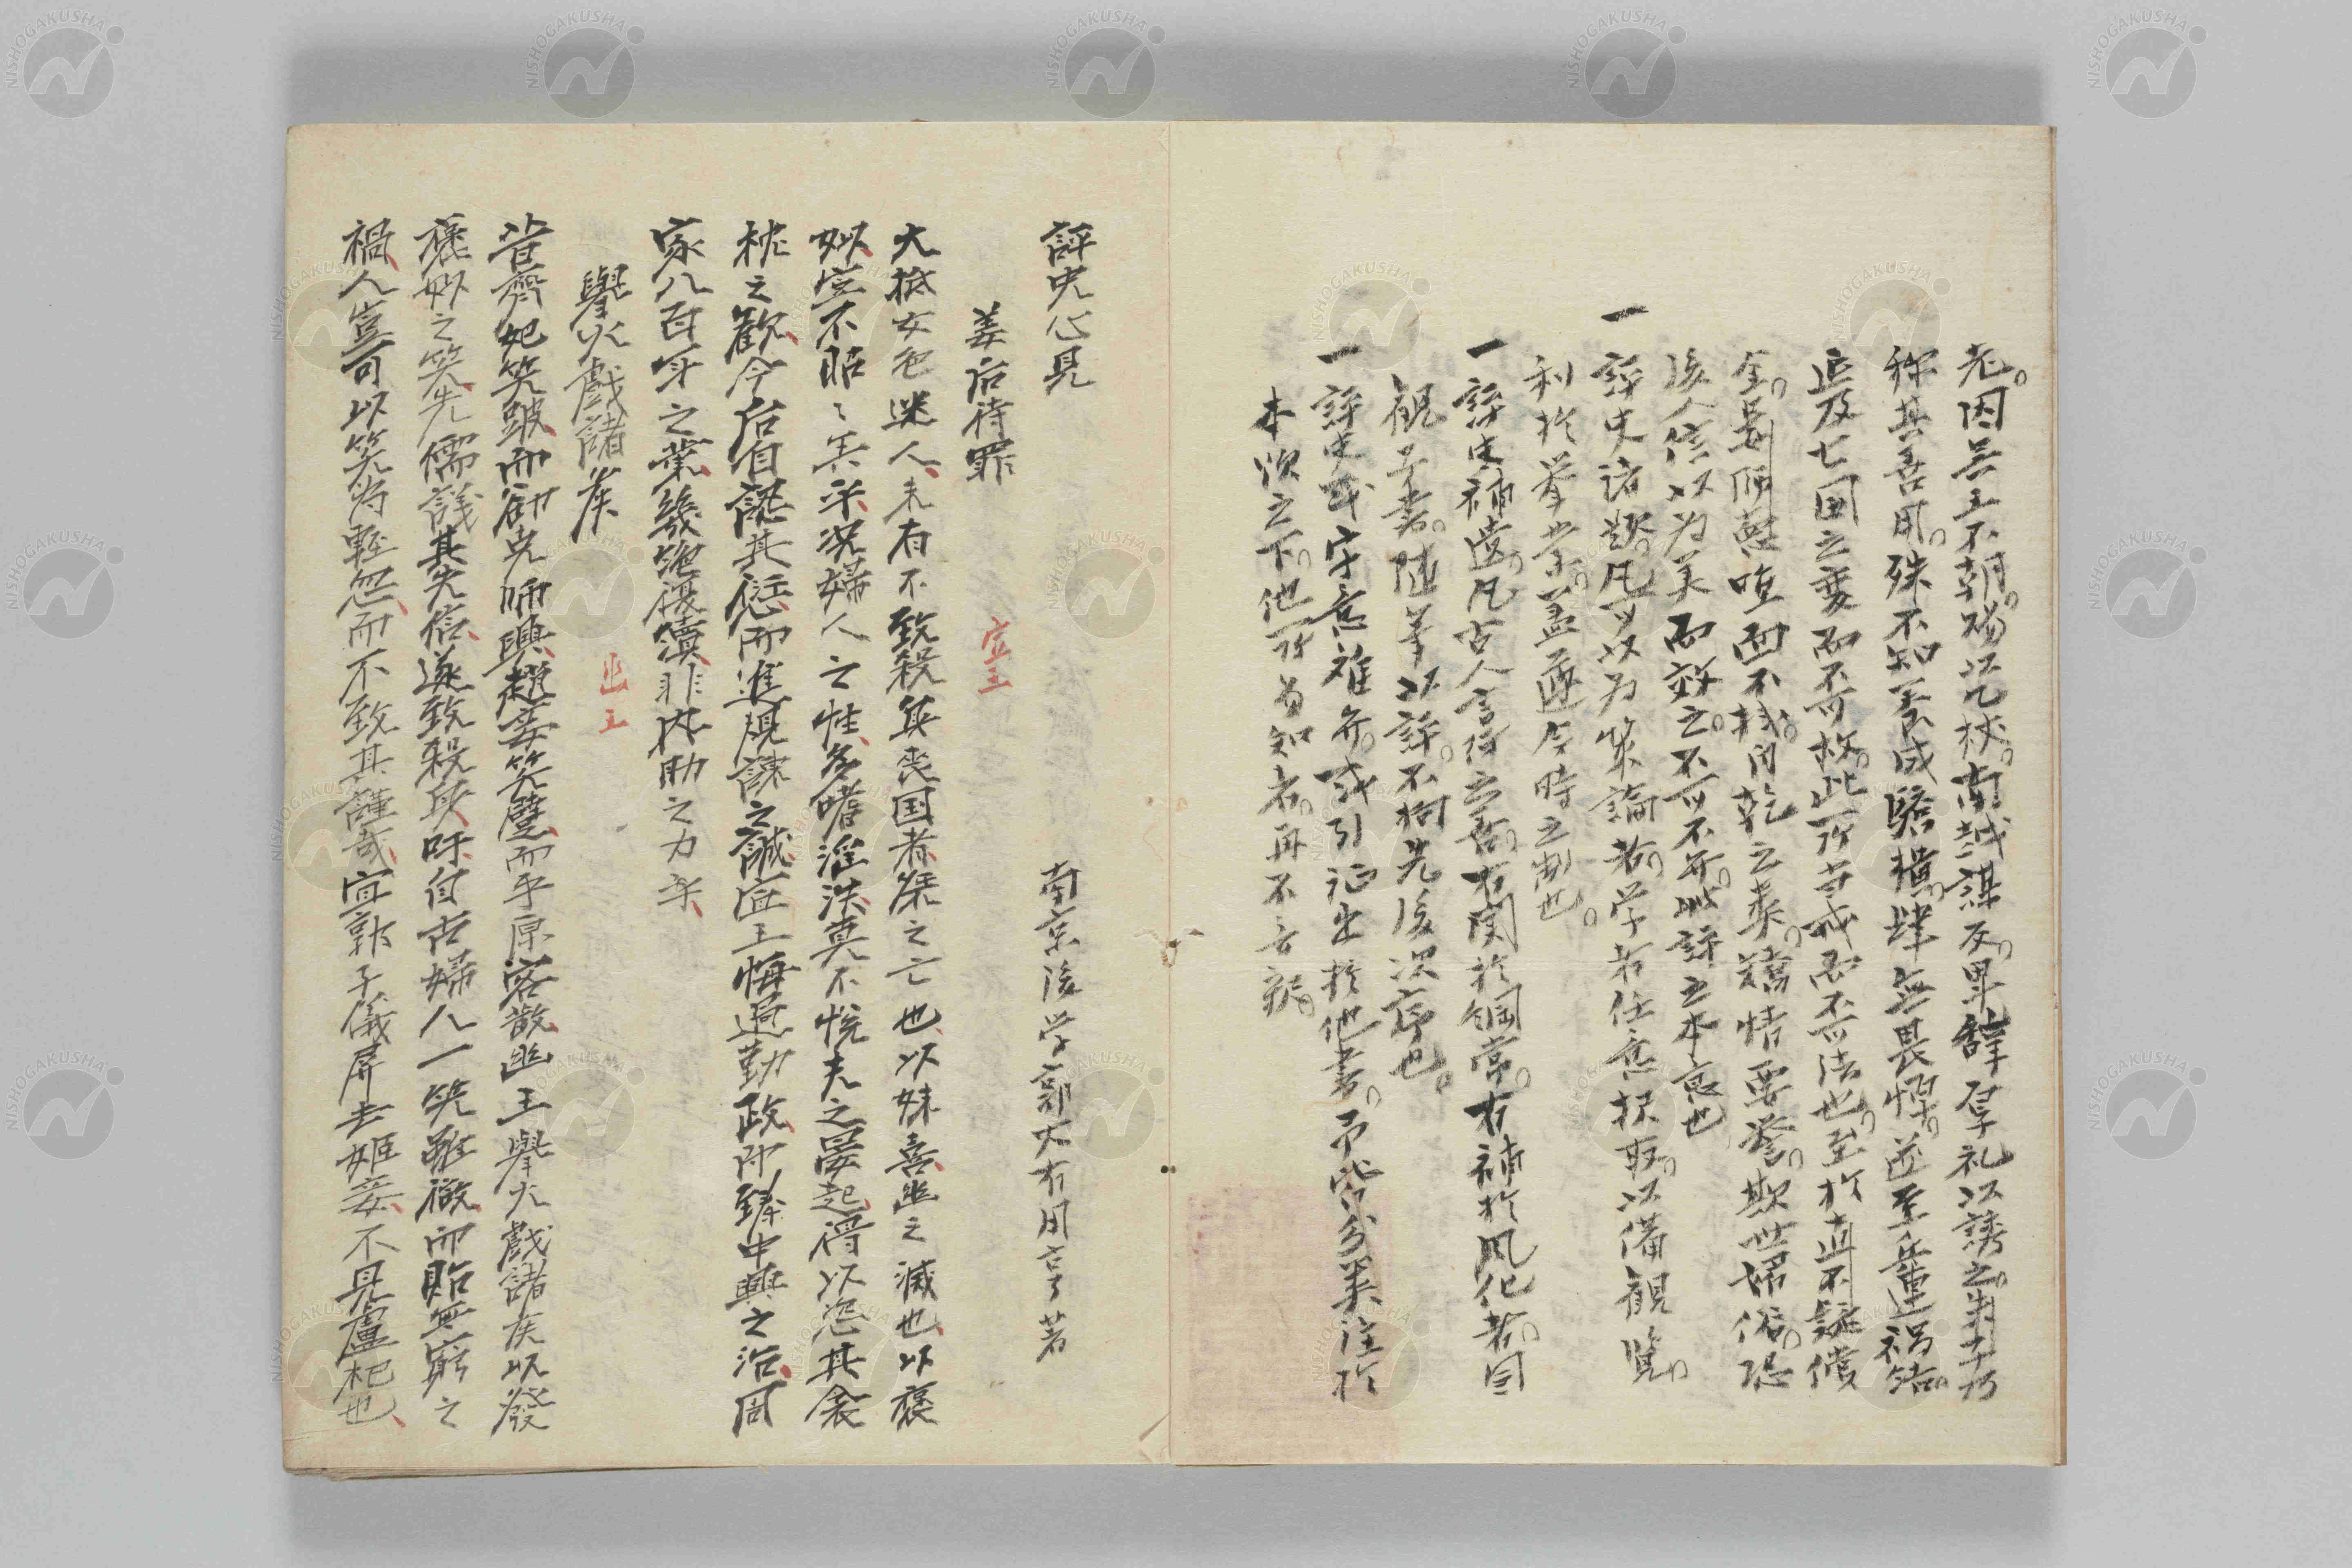 老因呉王不朝賜以几杖南越謀反卑辞厚礼以誘之
称其善用殊不知養成驕横肆無畏憚遂至兵連禍結
延及七国之変而不可救此所当戒而不可法也至於直不疑償
金
後人信以为美而效之不可以不弁此評之本意也
一評史諸題凡可以为策論者学者任意択取以備観覧
利於挙業盖遵今時之制也
一評史補遺凡古人言行之善有関於綱常有補於風化者因
観子書随筆以評不拘先後次序也
一評史或字意难弁或引証出於他書予皆分美注於
本版之下他所易知者再不音釈
評史心見　南京後学郭大有用亨著
姜后待罪　宣王
大抵女色迷人未有不致殺身喪国者桀之亡也以妹喜幽之滅也以褒
姒宣不昭〻矣乎况婦人之性多嗜淫泆莫不悦夫之晏起得以恣其衾
枕之歡今后自認其愆而進規諫之誠宣王悔過勤政卽臻中興之治周
家八百年之業幾絶復續非内助之力乎
舉火戲諸侯　幽王
昔齊妃笑跛而郤克師興趙妾笑躄而平原客散幽王舉火戲諸侯以發
褒姒之笑先儒議其失信遂致殺身吁自古婦人一笑雖微而貽無窮之
禍人豈可以笑為輕忽而不致其謹哉宜郭子儀屏去姬妾不見盧杞也
NISHOGAKUSHA